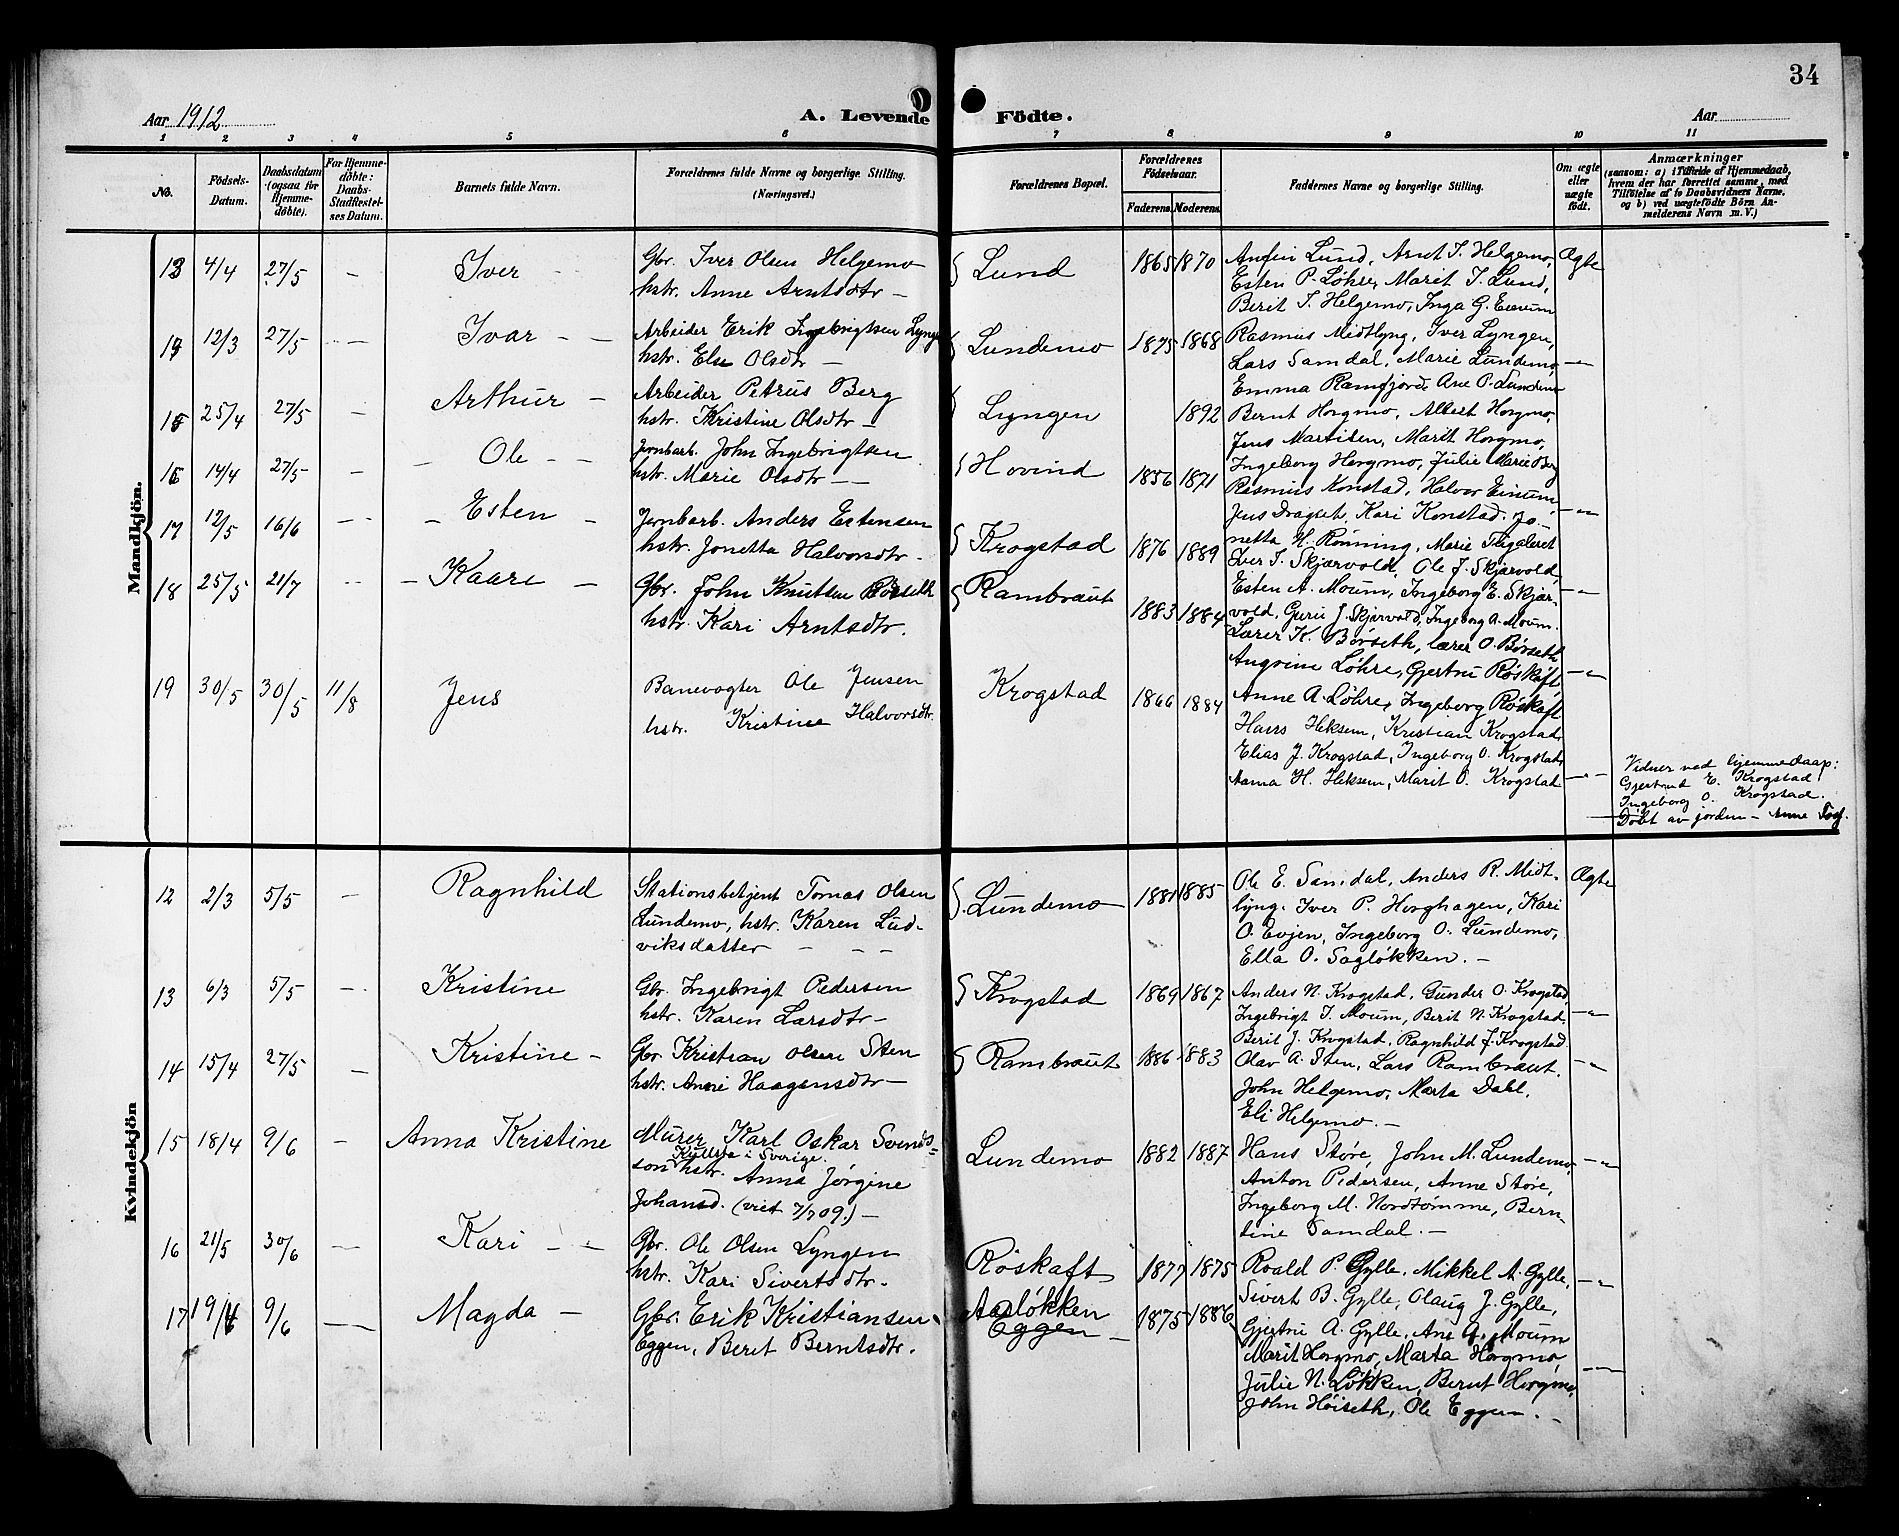 34
Aar 1912
A. Levende Födte.
Aar
1 2 3 4 5 6 7 8 9 10 11
No.
Födsels-Datum.
Daabsdatum (ogsaa for Hjemme-döbte).
For Hjemme-döbte: Daabs-Stadfæstel-ses Datum.
Barnets fulde Navn.
Forældrenes fulde Navne og borgerlige Stilling. (Næringsvei.)
Forældrenes Bopæl.
Forældrenes Födselsaar.
Faderens. Moderens.
Faddernes Navne og borgerlige Stilling.
Om ægte eller uægte födt.
Anmærkninger
(saasom: a) i Tilfælde af Hjemmedaab,
hvem der har forrettet samme, med
Tilföielse af to Daabsvidners Navne,
og b) ved uægtefödte Börn An-
melderens Navn m. V.)
Mandkjön.
13 4/4 27/5 – Iver
Gbr. Iver Olsen Helgemo
hstr. Anne Arntsdtr –
Lund 1865 1870
Anfin Lund, Arnt I. Helgemo,
Esten P. Løhre, Marit I. Lund,
Berit I. Helgemo, Inga G. Eenum
Ægte
12/3 27/5 – Ivar – –
Arbeider Erik Ingebrigtsen Lyng
hstr. Else Olsdtr –
Lundemo 1875 1868
Rasmus Midtlyng, Iver Lyngen,
Lars Samdal, Marie Lundemo,
Emma Ramfjord, Ane P. Lundemo
25/4 27/5 – Arthur –
Arbeider Petrus Berg
hstr. Kristine Olsdtr –
Lyngen 1892
Bernt Horgmo, Albert Horgmo,
Jens Martisen, Marit Horgmo,
Ingeborg Horgmo, Julie Marie Berg
16 14/4 27/5 – Ole – –
Jernbarb. John Ingebrigtsen
hstr. Marie Olsdtr – –
Hovind 1856 1871
Rasmus Konstad, Halvor Einum
Jens Dragset, Kari Konstad, Jo-
netta H. Rønning, Marie
17 12/5 16/6 – Esten –
Jernbarb. Anders Estensen
hstr. Jonetta Halvorsdtr. –
Krogstad 1876 1889
Iver I. Skjærvold, Ole J. Skjærvold,
Esten A. Moum, Ingeborg E. Skjær-
vold, Guru J. Skjervold, Ingeborg A. Moum.
18 25/5 21/7 – Kaare –
Gbr. John Knutsen Børseth
hstr. Kari Arntsdtr.
Rambraut 1883 1884
Lærer K. Børseth, lærer O. Børseth
Angvine Løhre, Gjertru Røskaft
Anne A. Løhre, Ingeborg Røskaft
19 30/5 30/5 11/8 Jens
Banevogter Ole Jensen
hstr. Kristine Halvorsdtr.
Krogstad 1866 1884
Hans Heksem, Kristian Krogstad,
Elias J. Krogstad, Ingeborg O. Krogstad,
Anna H. Heksem, Marit O. Krogstad
Vidner ved hjemmedaap:
Gjertrud E. Krogstad
Ingeborg O. Krogstad.
Døbt av jordm – Anne
Kvindekjön
12 2/3 5/5 – Ragnhild
Stationsbetjent Tomas Olsen
Lundemo, hstr. Karen Lud-
viksdatter – – –
Lundemo 1881 1885
Ole E. Samdal, Anders R. Midt-
lyng. Iver P. Horghagen, Kari
O. Evjen, Ingeborg O. Lundemo,
Ella O. Sagløkken. –
Ægte
13 6/3 5/5 – Kristine
Gbr. Ingebrigt Pedersen
hstr. Karen Larsdtr –
Krogstad 1869 1867
Anders N. Krogstad, Gunder O. Krogstad,
Ingebrigt I. Moum, Berit N. Krogstad,
Berit J. Krogstad, Ragnhild J. Krogstad
14 15/4 27/5 – Kristine –
Gbr Kristian Olsen Sten
hstr. Anne Haagensdtr –
Rambraut 1886 1883
Olav A. Sten, Lars Rambraut.
John Helgemo, Marta Dahl.
Eli Helgemo. –
15 18/4 9/6 – Anna Kristine
Murer Karl Oskar Svends-
son Kullsta i Sverige. hstr. Anna Jørgine
Johansd. (viet 7/7 09.) –
Lundemo 1882 1887
Hans Støre, John M. Lundemo,
Anton Pedersen, Anne Støre,
Ingeborg M. Nordtømme, Bern-
tine Samdal. –
16 21/5 30/6 – Kari – –
Gbr. Ole Olsen Lyngen
hstr. Kari Sivertsdtr.
Røskaft 1877 1875
Roald P. Gylle, Mikkel A. Gylle,
Sivert B. Gylle, Olaug J. Gylle,
Gjertru A. Gylle, Ane A. Moum
17 19/4 9/6 – Magda –
Gbr. Erik Kristiansen
Eggen, Beret Berntsdtr.
Aasløkken
Eggen – 1875 1886
Marit Horgmo, Marta Horgmo
Julie N. Løkken, Bernt Horgmo,
John Høiseth, Ole Eggen. –